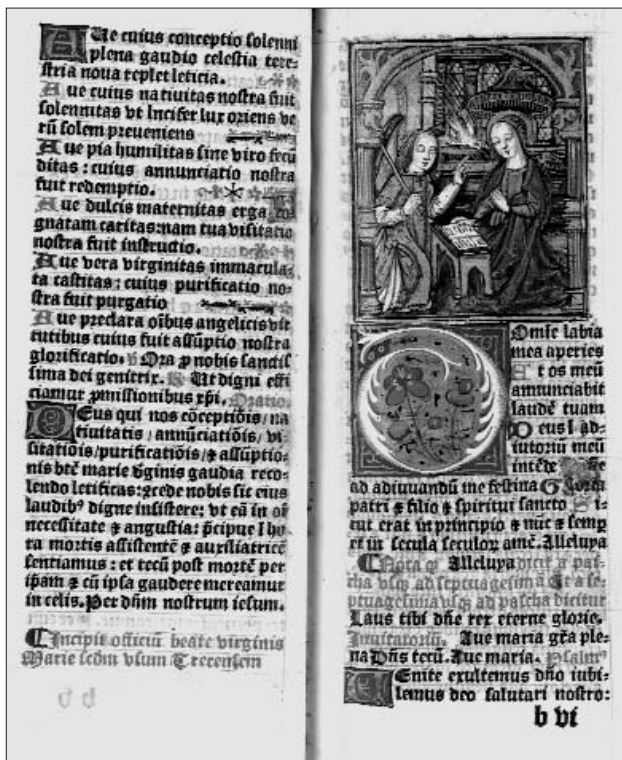 Aue cuius conceptio solenni
plena gaudio celestia tere⸗
stria noua replet leticia.
Aue cuius natiuitas nostra fuit
solennitas vt lucifer lux oriens ve
rū solem preueniens
Aue pia humilitas sine viro fecū
ditas : cuius annunciatio nostra
fuit redemptio.
Aue dulcis maternitas erga co
gnatam caritas:nam tua visitatio
nostra fuit instructio.
Aue vera virginitas immacula⸗
ta castitas: cuius purificatio no⸗
stra fuit purgatio
Aue preclara oībus angelicis vir
tutibus cuius fuit assūptio nostra
glorificatio. ℣ Ora ꝓ nobis sanctis
sima dei genitrix. ℟ Ut digni effi
ciamur ꝓmissionibus xp̄i. Oratio.
Deus qui nos cōceptiōis / na
tiuitatis / annūciatiōis / vi⸗
sitatiōis / purificatiōis / ⁊ assūptio⸗
nis btē marie v̄ginis gaudia reco⸗
lendo letificas: ꝯcede nobis sic eius
laudibꝰ digne insistere: vt eā in oī
necessitate ⁊ angustia: p̄cipue I ho
ra mortis assistentē ⁊ auxiliatricē
sentiamus : et tecū post mortē per
ip̄am ⁊ cū ipsa gaudere mereamur
in celis. Per dn̄m nostrum iesum.
¶ Incipit officiū beate virginis
Marie scdm vsum Trecensem
Domīe labia
mea aperies
Et os meū
annunciabit
laudē tuam
Deus I ad⸗
iutoriū meū
intēde Dn̄e
ad adiuuandū me festina Gloria
patri ⁊ filio ⁊ spiritui sancto Si⸗
cut erat in principio ⁊ nūc ⁊ semp̄
et in secula seculoꝝ amē. Alleluya
¶ Nota ꝙ Alleluya dicit̄ a pas⸗
cha vsqꝫ ad septuagesimā Et a se⸗
ptuagesima vsqꝫ ad pascha dicitur
Laus tibi dn̄e rex eterne glorie.
Inuitatoriū. Aue maria gr̄a ple⸗
na Dn̄s tecū. Aue maria. Psalmꝰ
Uenite exultemus dn̄o iubi⸗
lemus deo salutari nostro:
b vi